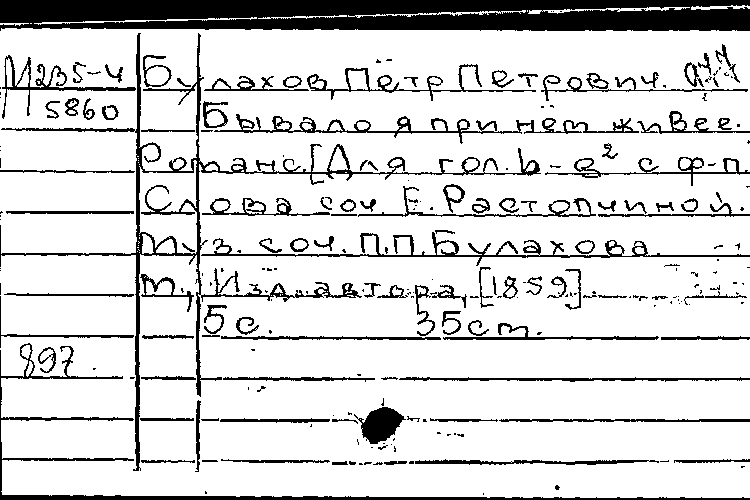 М235-4 Булахов, Пётр Петрович. а77
5860 Бывало я при нём живее.
Романс. [Для гол. b-g² с ф-п.
Слова соч. Е. Растопчиной.
Муз. соч. П.П. Булахова.
м., Изд. автора, [1859].
5 с. 35 см.
897.